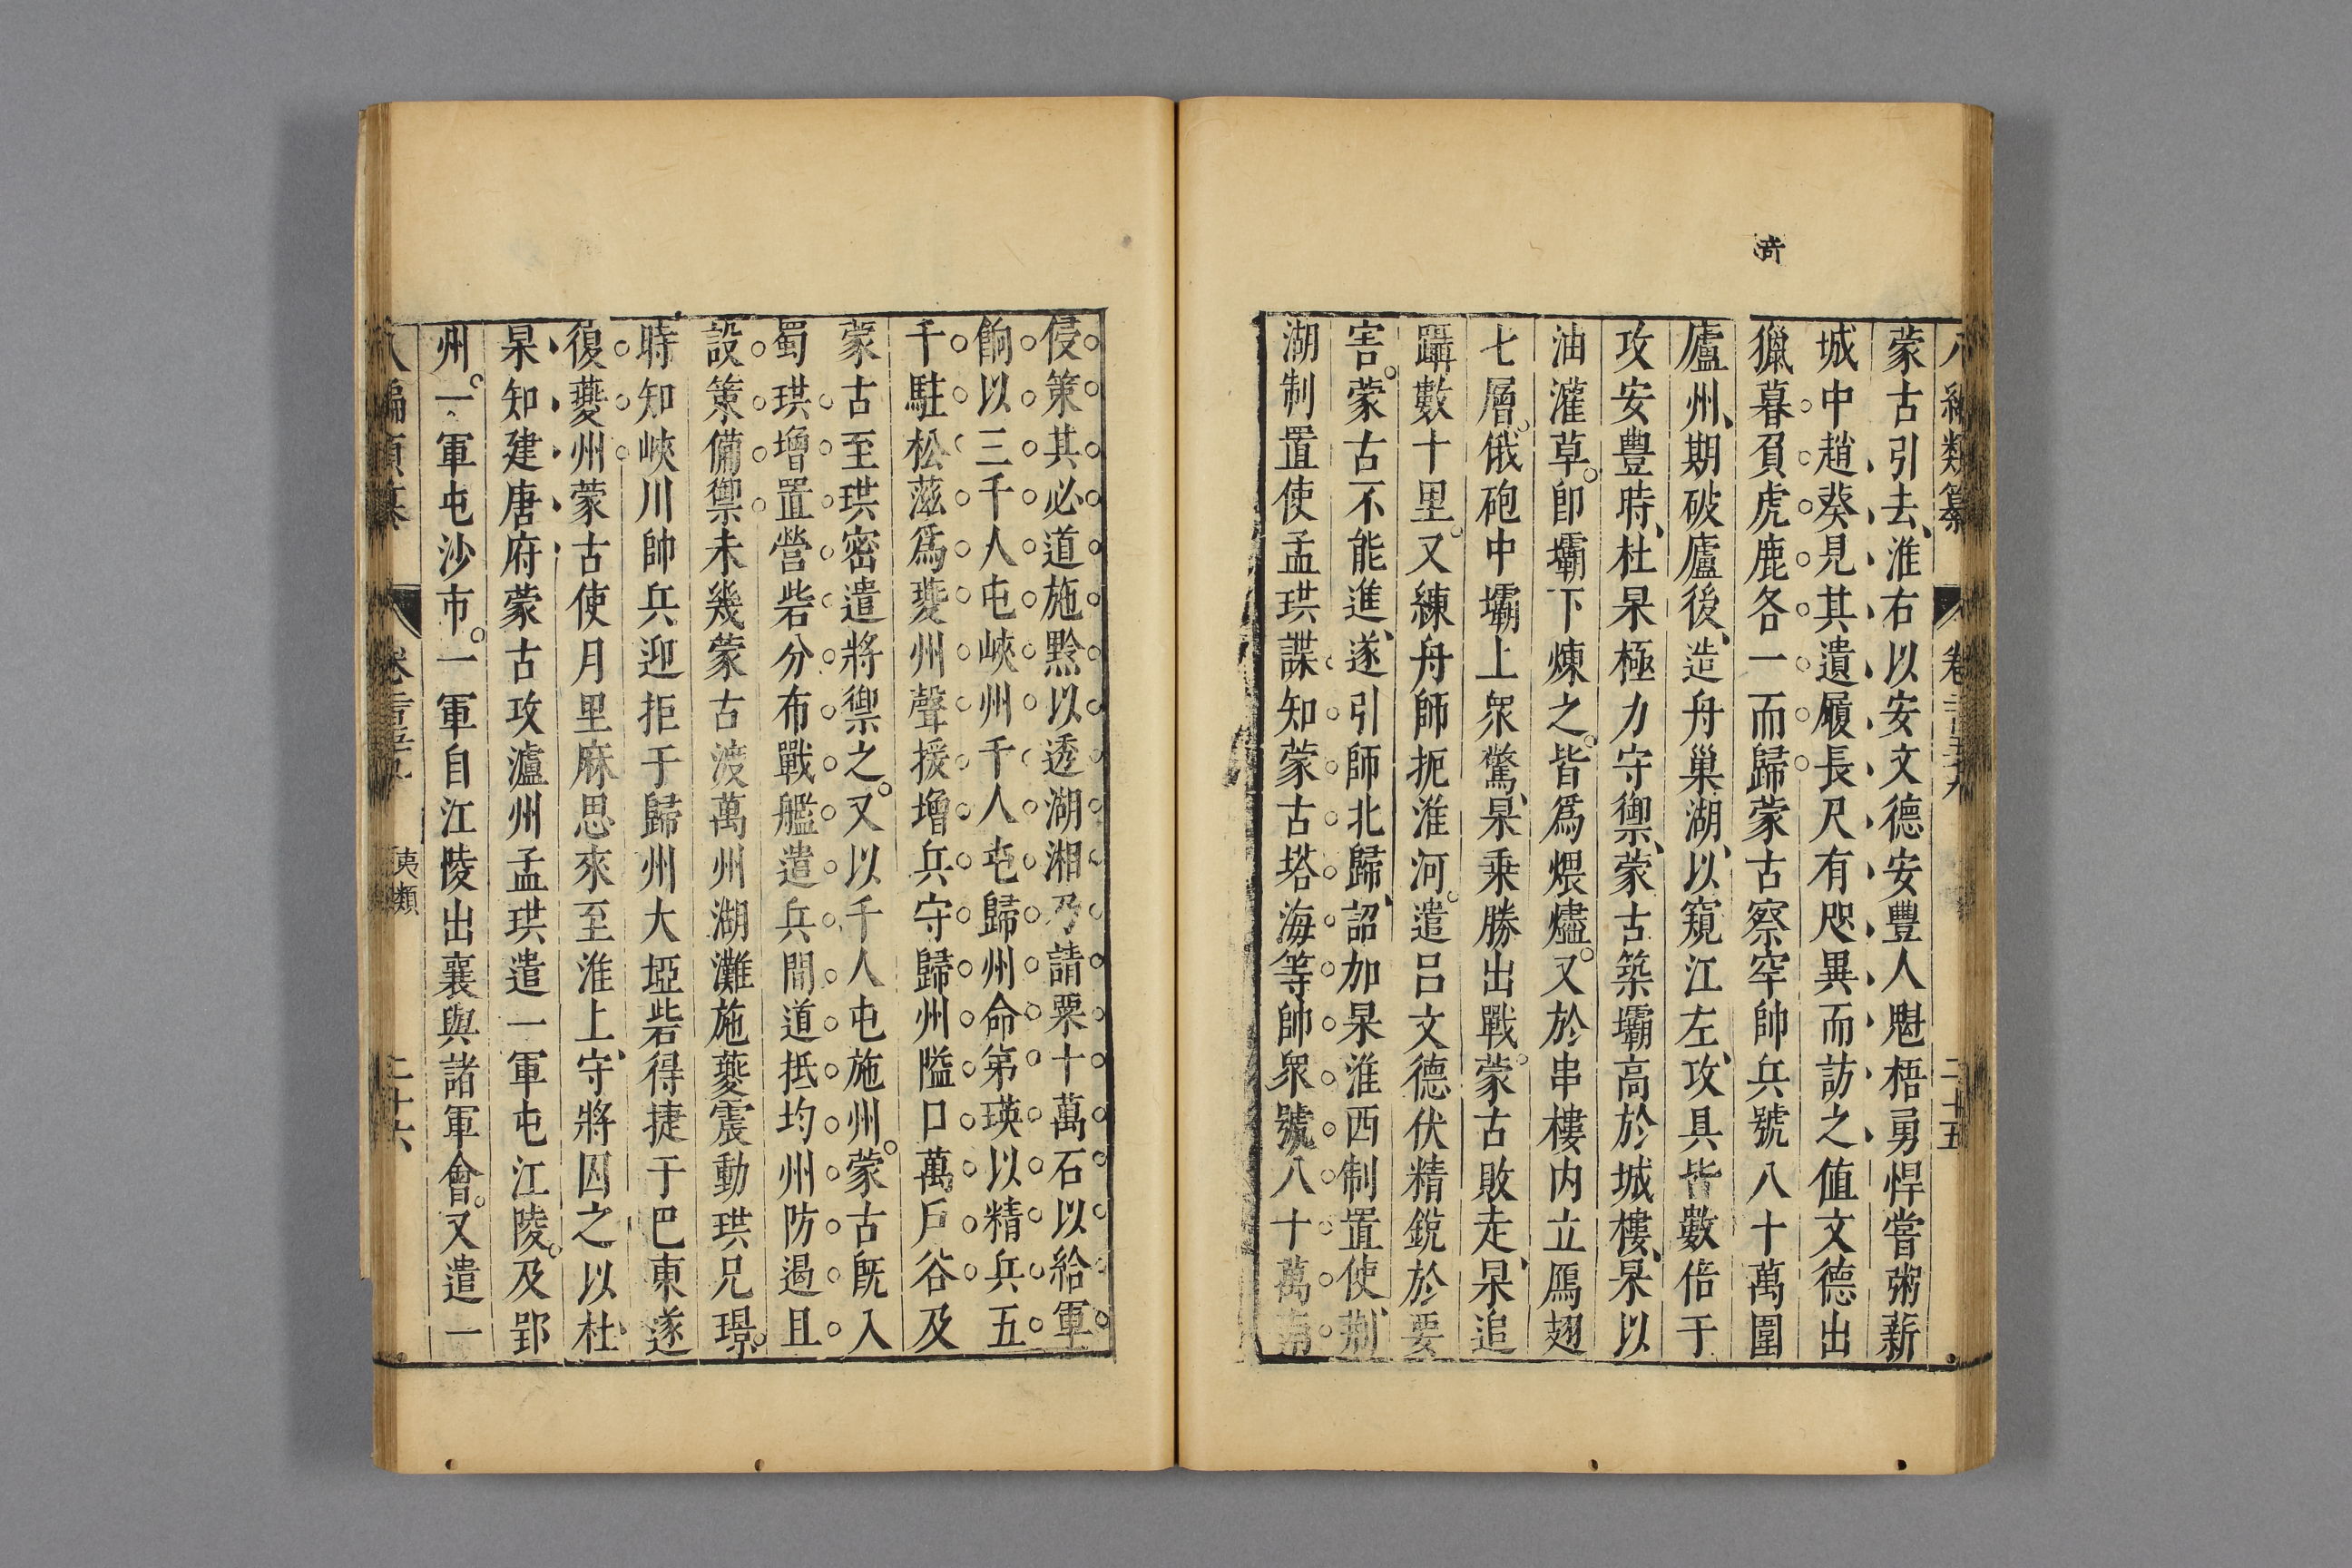 奇
八編類纂 卷二百五十九 二十五
蒙古引去淮右以安文德安豐人魁梧勇悍嘗粥薪
城中趙葵見其遺履長尺有咫異而訪之值文德出
獵暮負虎鹿各一而歸蒙古察罕帥兵號八十萬圍
廬州期破廬後造舟巢湖以窺江左攻具皆數倍于
攻安豐時杜杲極力守禦蒙古築壩高於城樓杲以
油灌草卽壩下煉之皆爲煨燼又於串樓内立鴈翅
七層俄砲中壩上衆驚杲乗勝出戰蒙古敗走杲追
躡數十里又練舟師扼淮河遣吕文德伏精銳於要
害蒙古不能進遂引師北歸詔加杲淮西制置使荆
湖制置使孟珙諜知蒙古塔海等帥衆號八十萬南
侵策其必道施黔以透湖湘乃請粟十萬石以給軍
餉以三千人屯峽州千人屯歸州命弟瑛以精兵五
千駐松滋爲夔州聲援增兵守歸州隘口萬戶谷及
蒙古至珙密遣將禦之又以千人屯施州蒙古旣入
蜀珙增置營砦分布戰艦遣兵間道抵均州防遏且
設策備禦未幾蒙古渡萬州湖灘施夔震動珙兄璟
時知峽川帥兵迎拒于歸州大埡砦得捷于巴東遂
復夔州蒙古使月里麻思來至淮上守將囚之以杜
杲知建唐府蒙古攻瀘州孟珙遣一軍屯江陵及郢
州一軍屯沙市一軍自江陵出襄與諸軍會又遣一
八編類纂 卷二百五十九 夷類 二十六